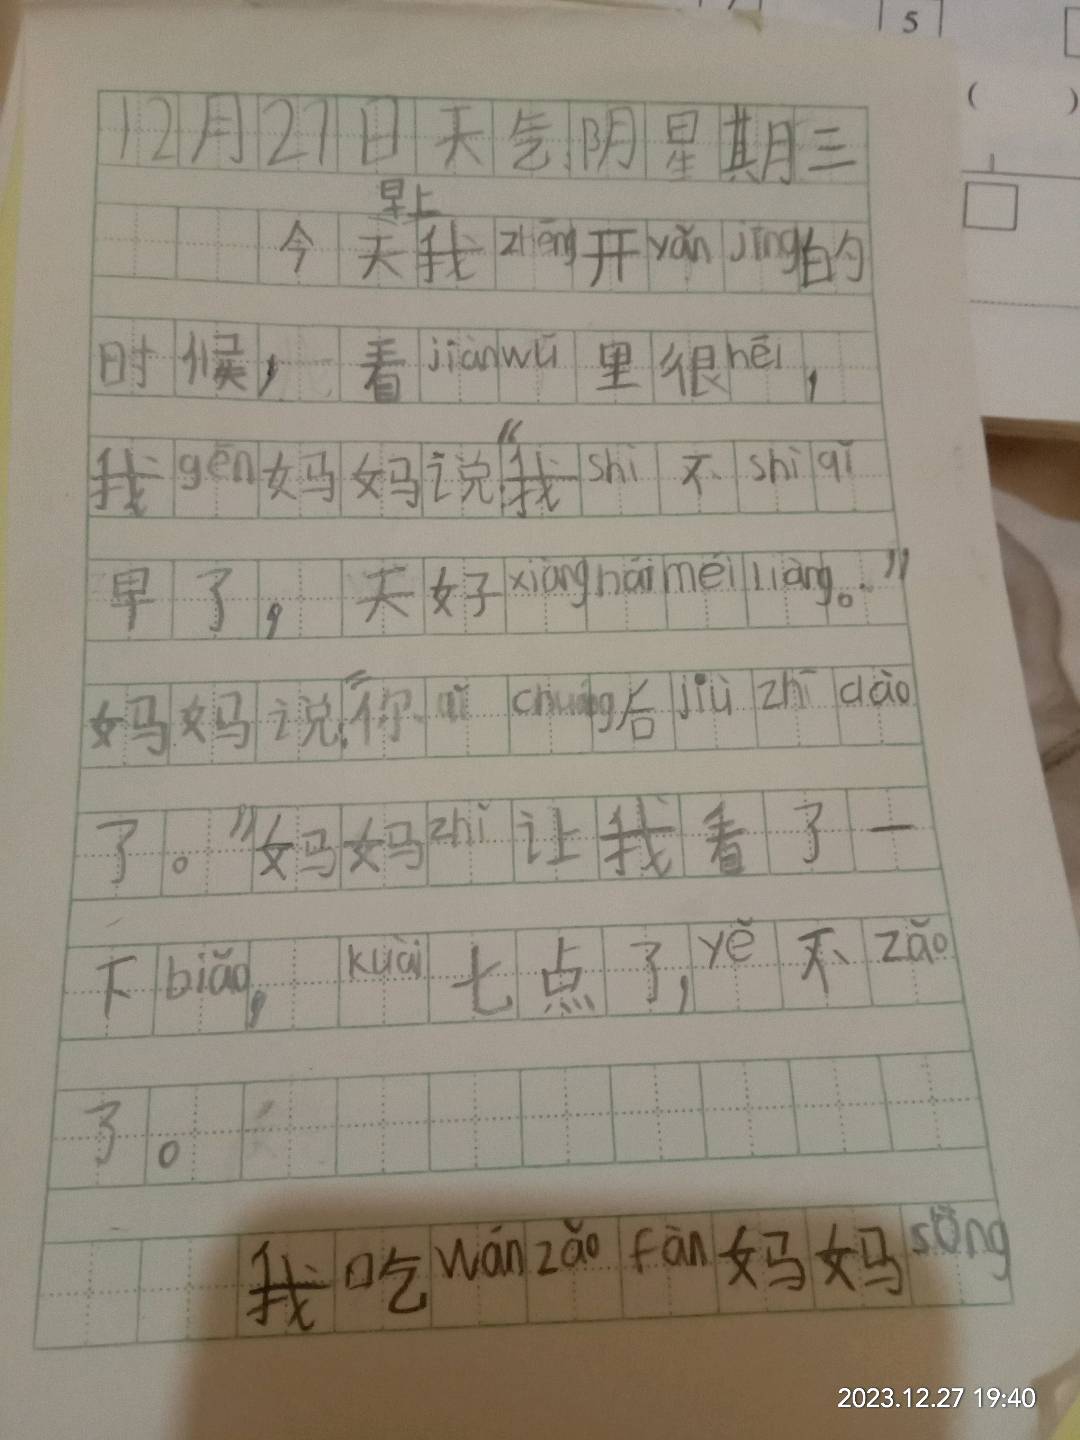 5
(     )
12月27日天气阴星期三
早上
今天我zhēng开yǎn jīng的
时候,看jiàn wū里很hēi,
我gēn妈妈说:“我shì不shì qǐ
早了,天好xiàng hái méi liàng。”
妈妈说:“你qǐ chuáng后jiù zhī dào
了。”妈妈zhǐ让我看了一
下biǎo,kuài七点了,yě不zǎo
了。
我吃wán zǎo fàn妈妈sòng
2023.12.27 19:40